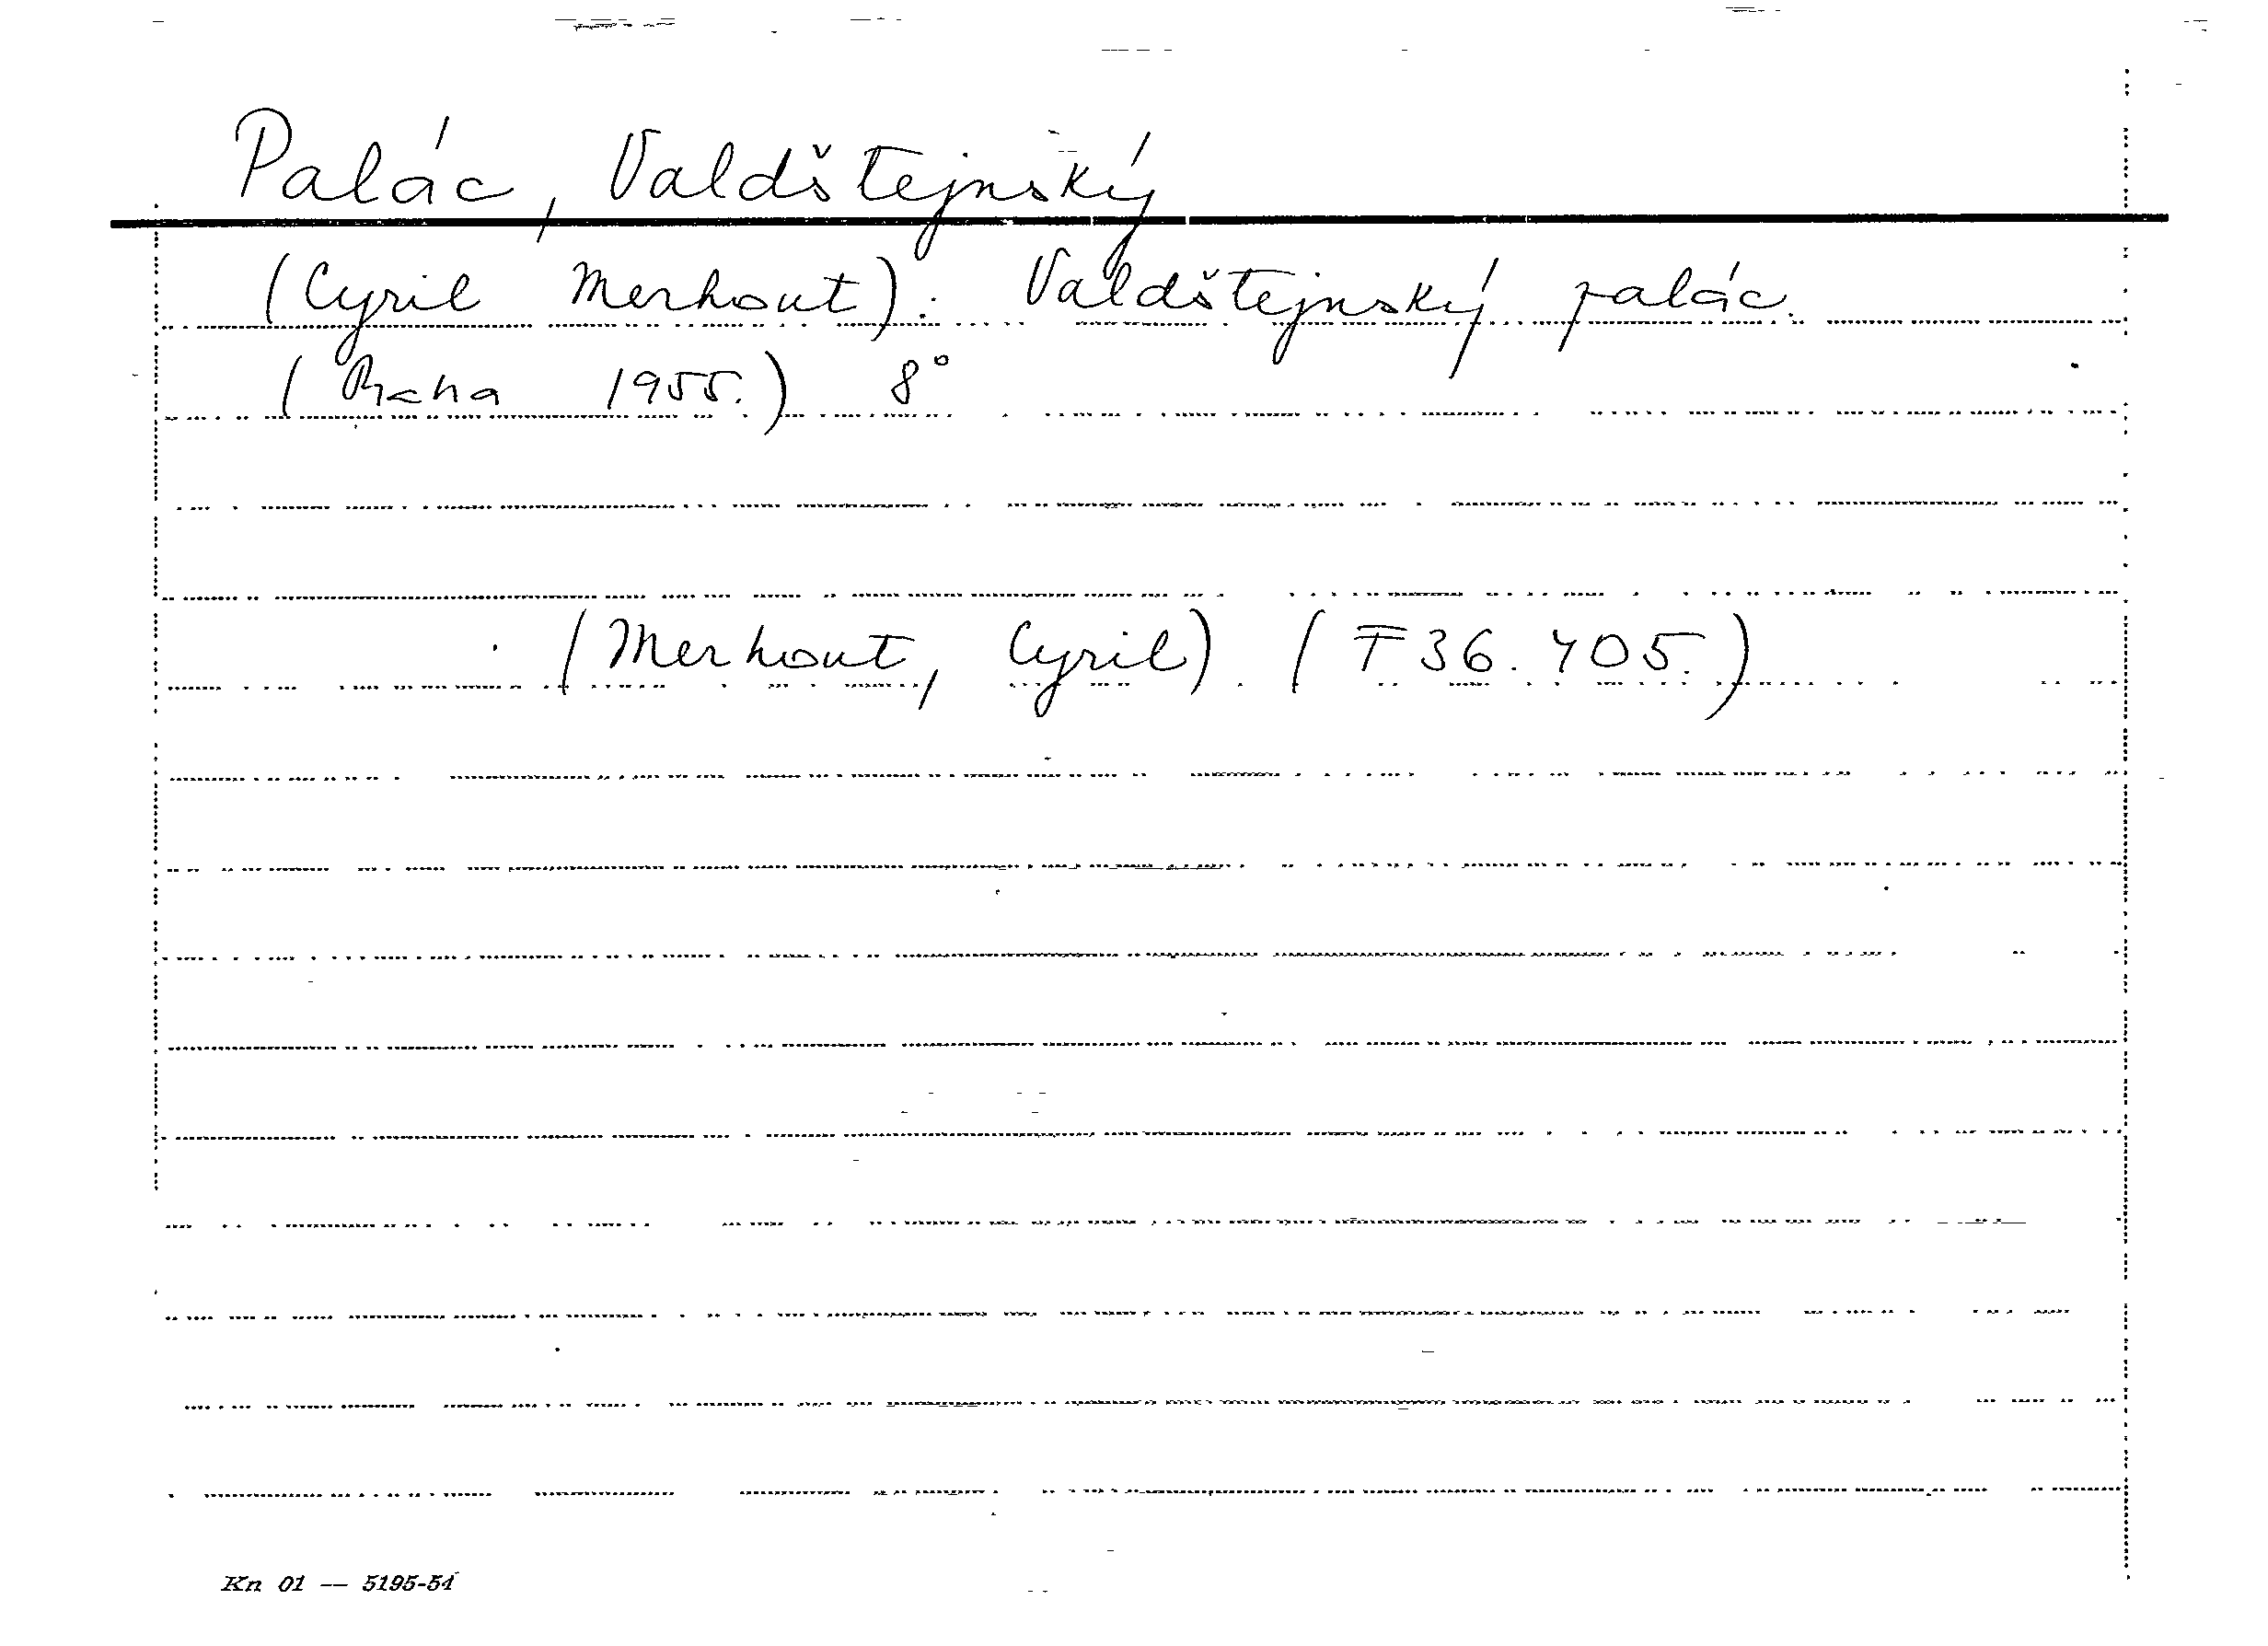 Palác, Valdštejnský
(Cyril Merhout): Valdštejnský palác.
(Praha 1955.) 8°
(Merhout, Cyril) (F 36.405.)
Kn 01 — 5195-54